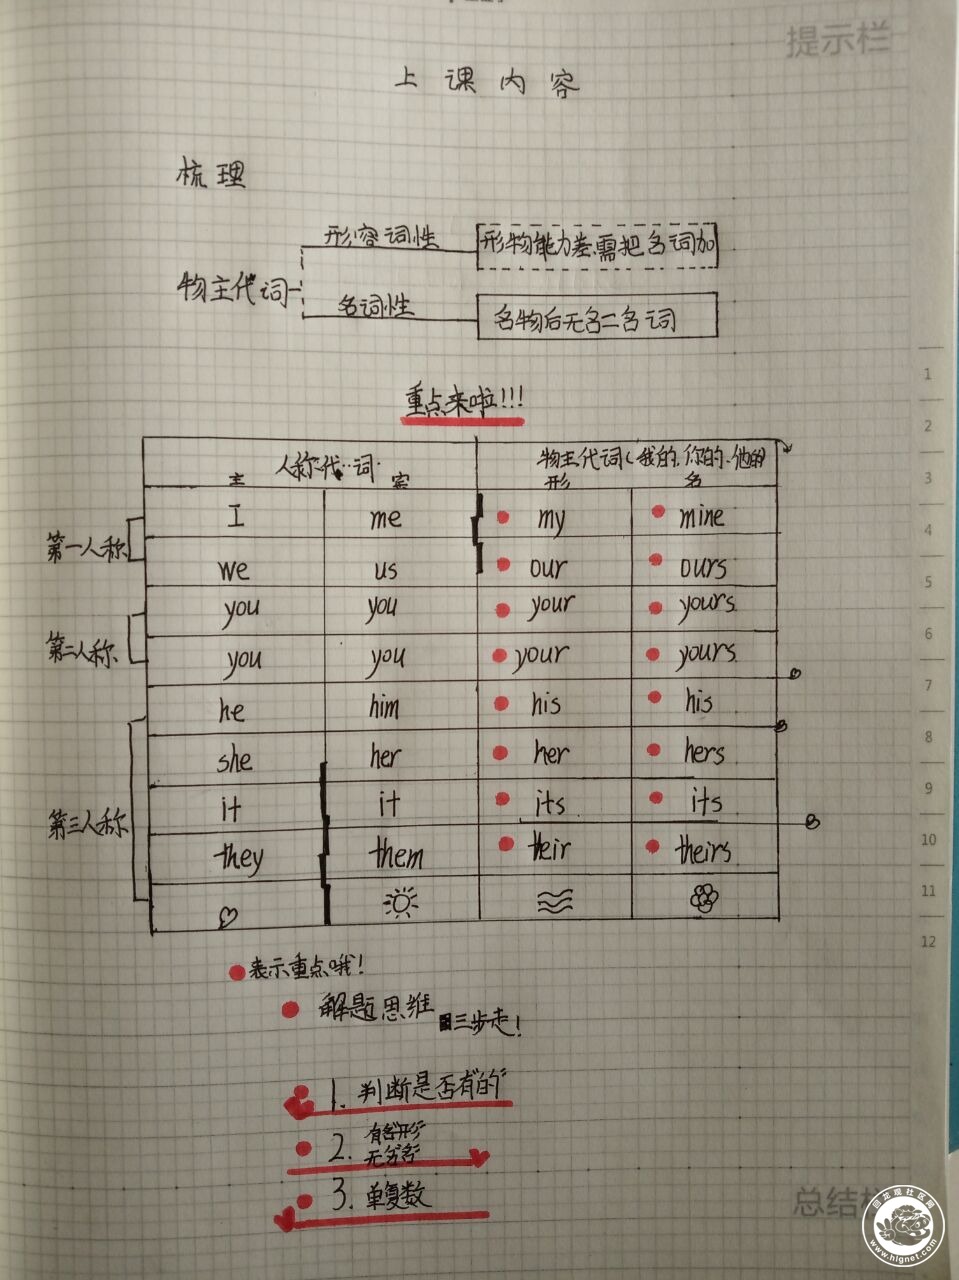 提示栏
上课内容
梳理
形容词性 形物能力差需把名词加
物主代词
名词性 名物后无名二名词
重点来啦!!!
人称代词 物主代词(我的.你的.他的
主 宾 形 名
I me my mine
第一人称
we us our ours
you you your yours
第二人称
you you your yours
he him his his
she her her hers
it it its its
第三人称
they them their theirs
表示重点哦!
解题思维 三步走!
1. 判断是否有"的"
2. 有名形
无名名
3. 单复数
1
2
3
4
5
6
7
8
9
10
11
12
总结
回龙观社区网
www.hlgnet.com